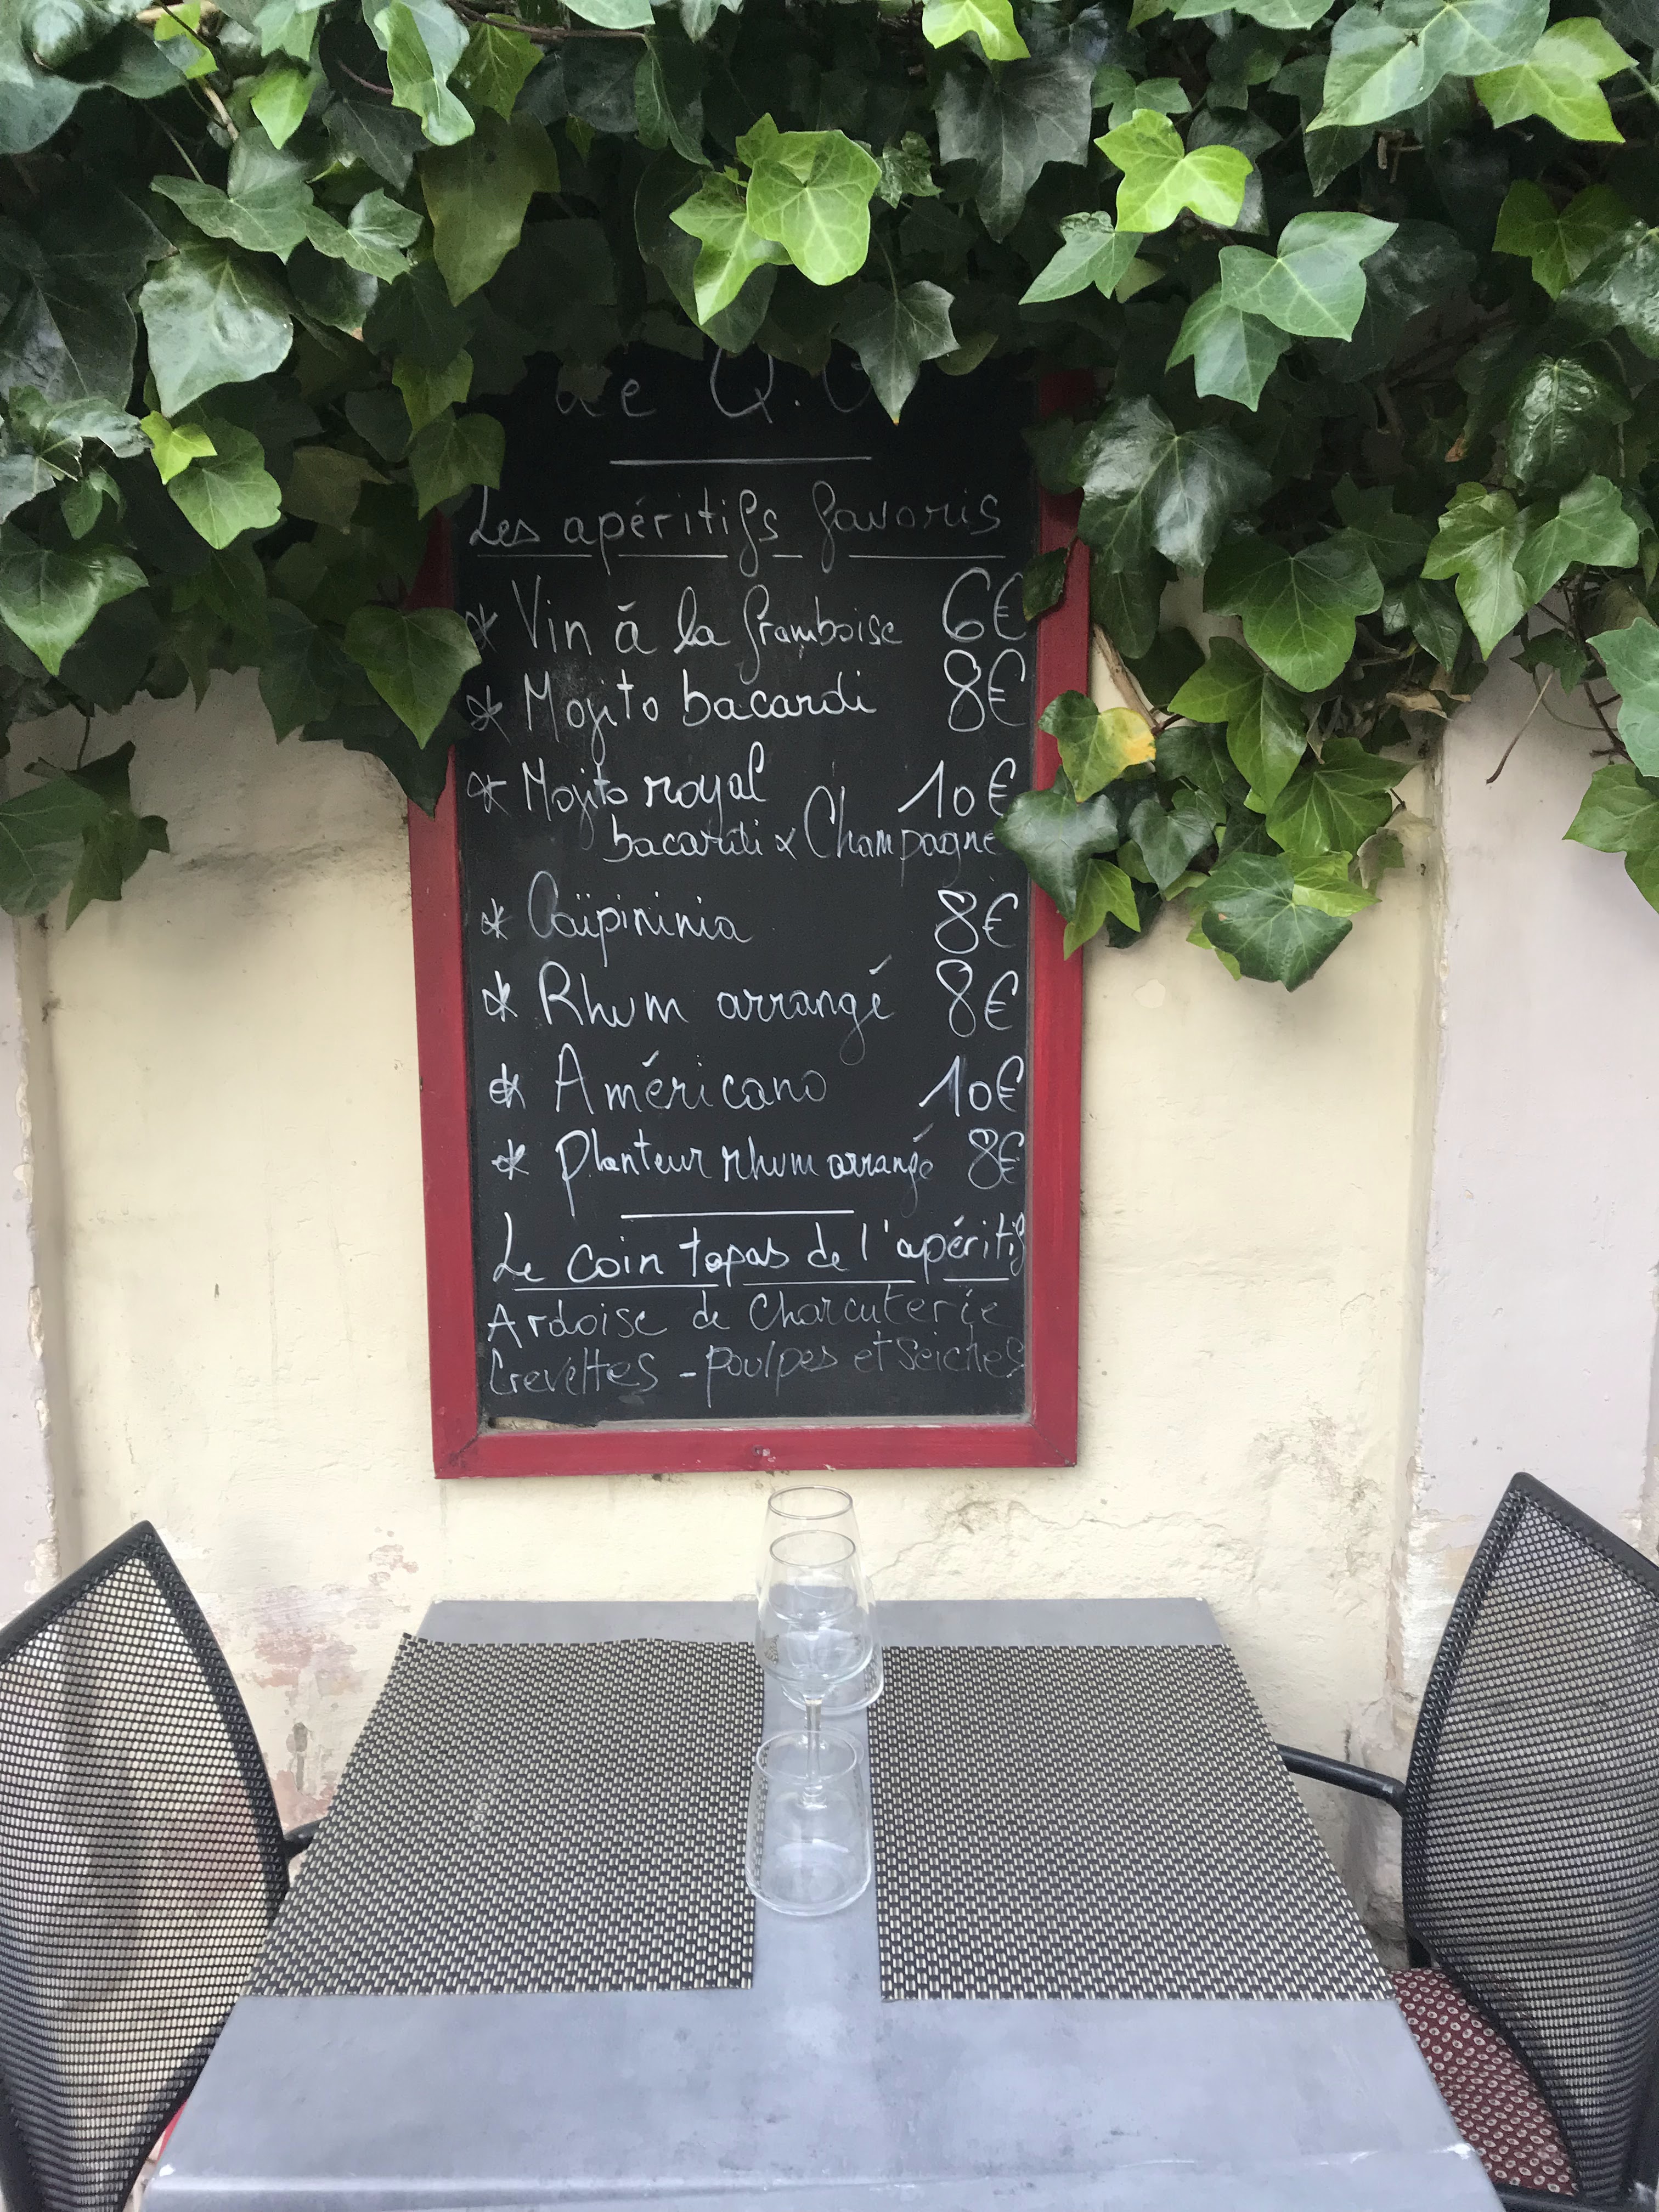 Les apéritifs favoris
* Vin à la framboise 6€
* Mojito bacardi 8€
* Mojito royal 10€
bacardi x Champagne
* Caïpirinia 8€
* Rhum arrangé 8€
* Américano 10€
* Planteur rhum arrangé 8€
Le coin tapas de l'apéritif
Ardoise de Charcuterie
Crevettes - poulpes et Seiches